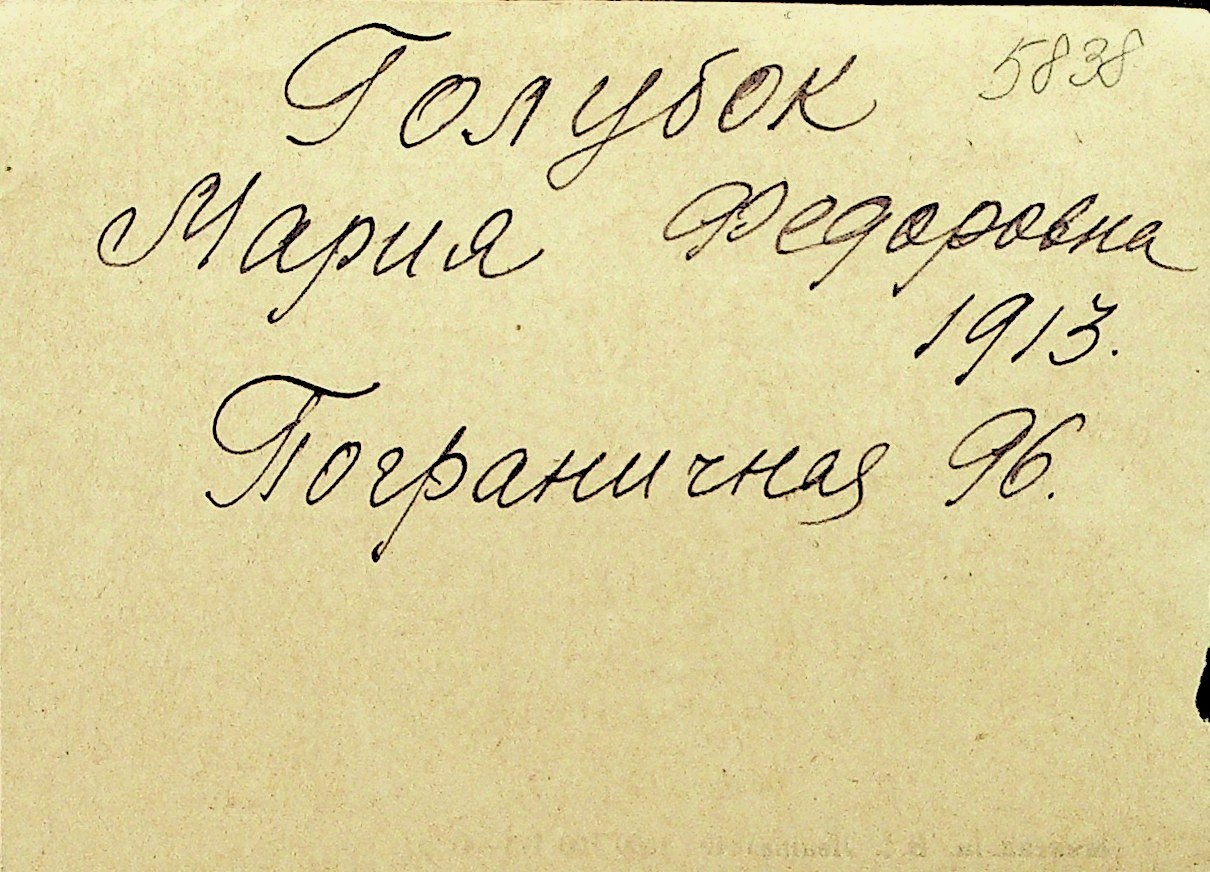 5838
Голубок
Мария Федоровна
1913.
Пограничная 96.